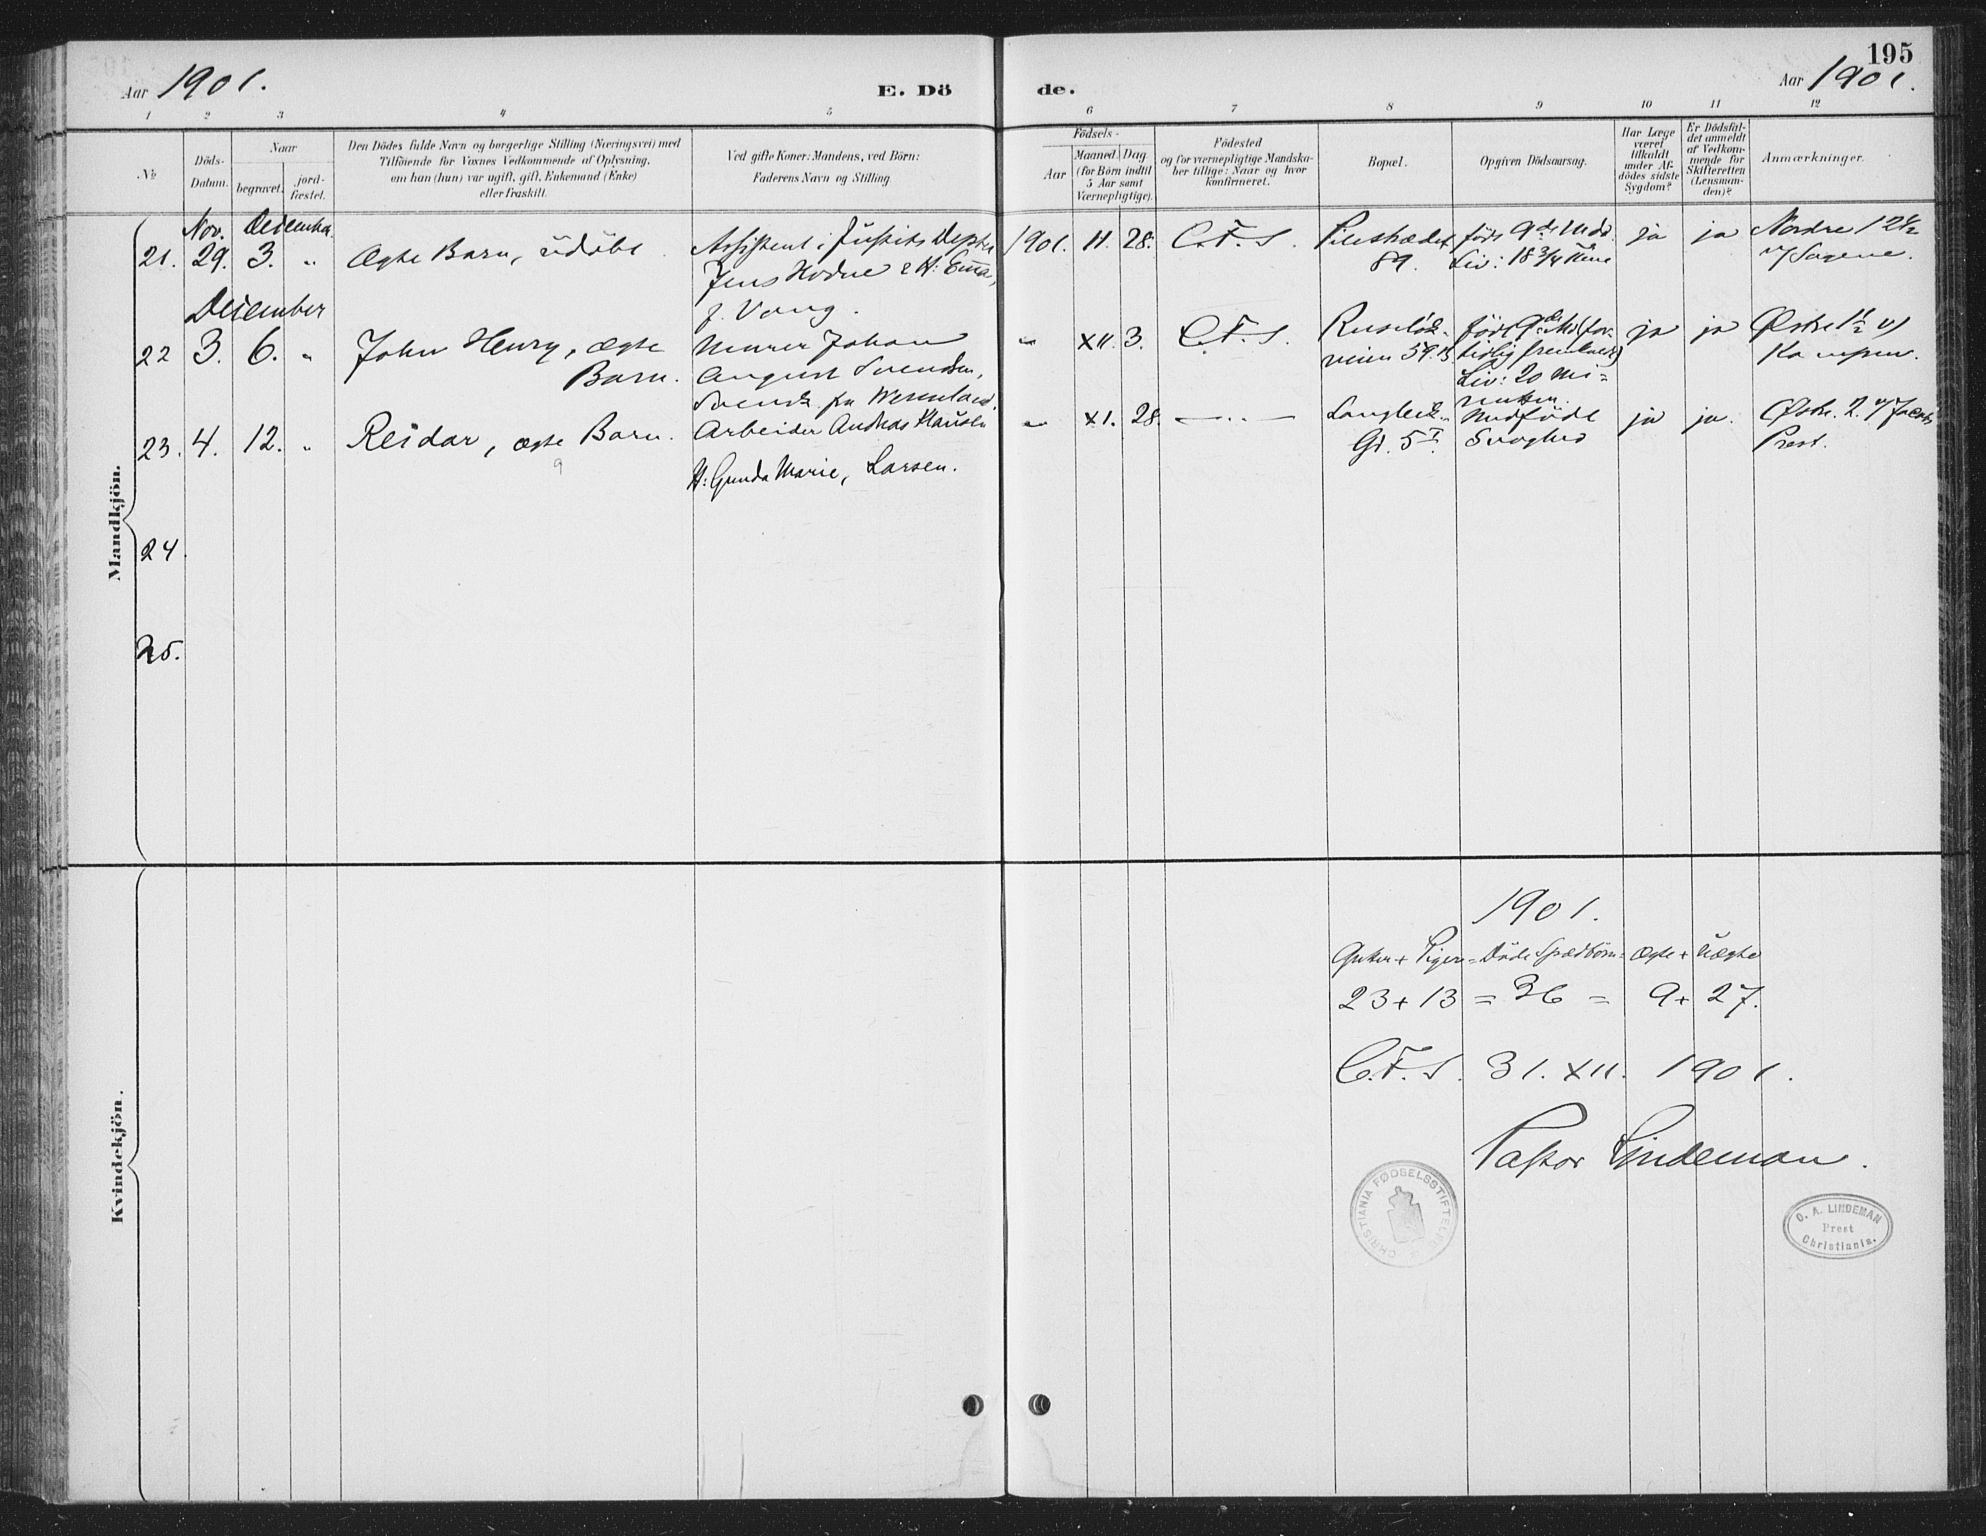 195
Aar 1901.
E. Dö
de.
Aar 1901.
1 2 3 4 5 6 7 8 9 10 11 12
№
Döds-
Datum.
Naar
begravet.
jord-
fæstet.
Den Dödes fulde Navn og borgerlige Stilling (Næringsvei) med
Tilföiende for Voxnes Vedkommende af Oplysning,
om han (hun) var ugift, gift, Enkemand (Enke)
eller fraskilt.
Ved gifte Koner: Mandens, ved Börn:
Faderens Navn og Stilling
Födsels-
Aar
Maaned. Dag.
(for Börn indtil
5 Aar samt
Værnepligtige).
Födested
og for værnepligtige Mandska-
ber tillige: Naar og hvor
konfirmeret.
Bopæl.
Opgiven Dödsaarsag.
Har Læge
været
tilkaldt
under Af-
dödes sidste
Sygdom?
Er Dödsfal-
det anmeldt
af Vedkom-
mende for
Skifteretten
(Lensman-
den)?
Anmærkninger.
Mandkjön.
Nov. December
21. 29. 3. " Ægte Barn, udöbt.
Assistent i Justits Depte
Jens Hodne & H: Emma,
f. Vang.
1901. 11. 28. C.F.S.
Pilestrædet
89.
födt 9de Mdd.
Liv: 18 3/4 Time
ja ja
Nordre 12 1/2
v/ Sagene.
December
22 3. 6. " John Henry, ægte
Barn.
Murer Johan
August Svendsen,
Svensk fra Wermland.
" XII. 3. C.F.S.
Ruselök-
veien 59.
födt 9de Md (for
tidlig
Liv: 20 Mi=
nutter.
ja ja
Östre 1 1/2 v/
Kampen.
23. 4. 12. " Reidar, ægte Barn.
9
Arbeider Andreas
H: Gunda Marie, Larsen.
" XI. 28. — " —
Gd. 5 I.
Medfödt
Svaghed
ja ja.
Östre. 2. v/ Jacobs
Prest.
24.
25.
Kvindekjön.
1901.
Gutter + Piger = Döde Spædbörn = Ægte + Uægte
23 + 13 = 36 = 9 + 27.
C.F.S. 31. XII. 1901.
Pastor Lindeman.
CHRISTIANIA FØDSELSSTIFTELSE
O. A. LINDEMAN
Prest
Christiania.